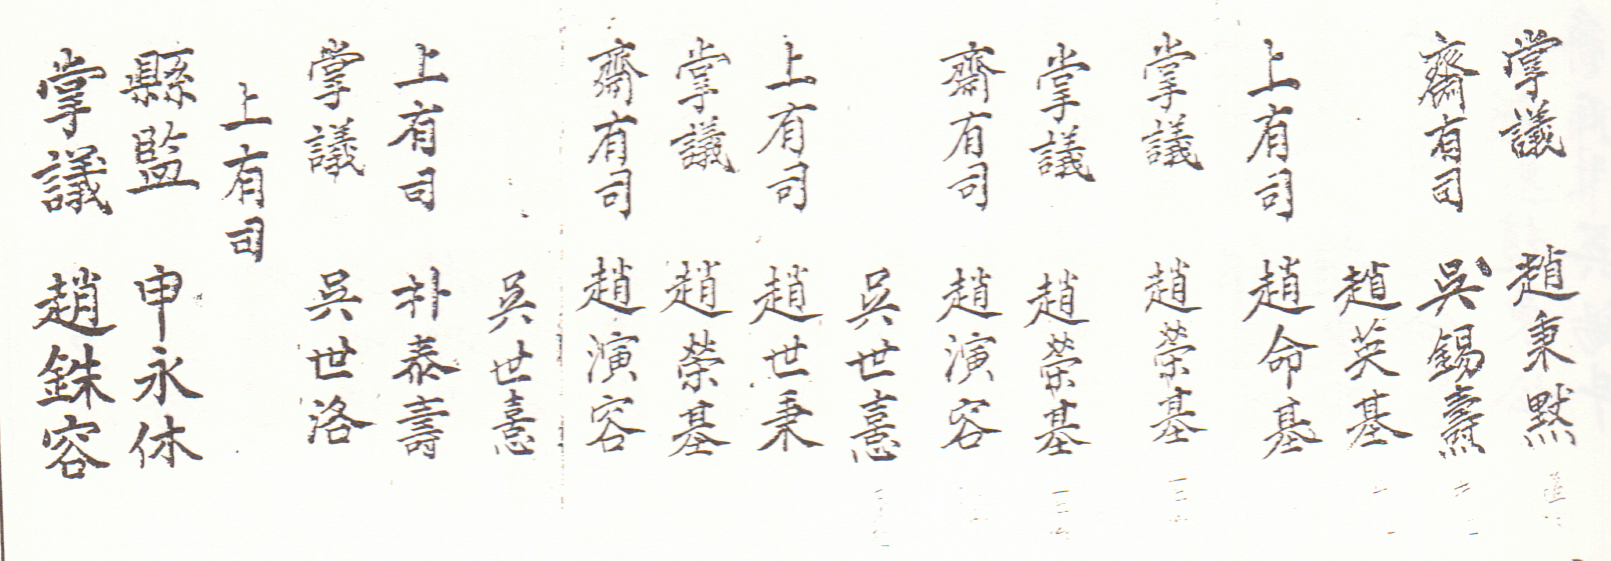 掌議 趙秉默
齋有司 吳錫燾
趙英基
上有司 趙命基
掌議 趙榮基
掌議 趙榮基
齋有司 趙演容
吳世憙
上有司 趙世秉
掌議 趙榮基
齋有司 趙演容
吳世憙
上有司 朴泰壽
掌議 吳世洛
上有司
縣監 申永休
掌議 趙銖容